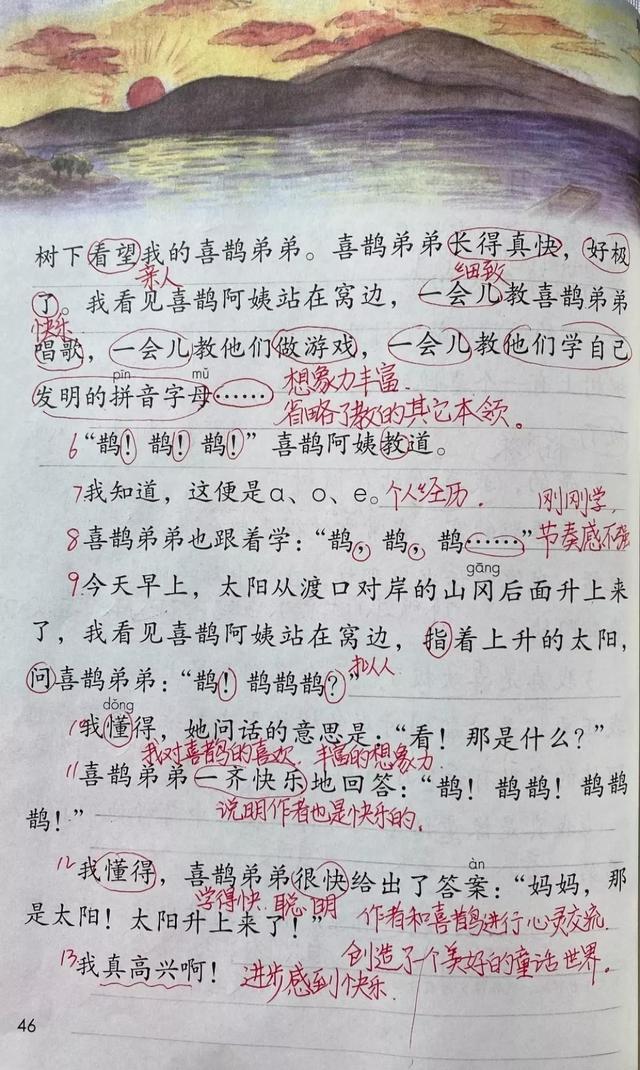 树下看望我的喜鹊弟弟。喜鹊弟弟长得真快，好极
亲人
细致
了。我看见喜鹊阿姨站在窝边，一会儿教喜鹊弟弟
快乐
唱歌，一会儿教他们做游戏，一会儿教他们学自己
pīn mǔ
发明的拼音字母……
想象力丰富
省略了教的其它本领。
6“鹊！鹊！鹊！”喜鹊阿姨教道。
7我知道，这便是ɑ、o、e。个人经历.
刚刚学,
8喜鹊弟弟也跟着学：“鹊，鹊，鹊……”节奏感不强
gāng
9今天早上，太阳从渡口对岸的山冈后面升上来
了，我看见喜鹊阿姨站在窝边，指着上升的太阳，
问喜鹊弟弟：“鹊！鹊鹊鹊？”拟人
dǒng
10我懂得，她问话的意思是：“看！那是什么？”
我对喜鹊的喜欢.丰富的想象力
11喜鹊弟弟一齐快乐地回答：“鹊！鹊鹊！鹊鹊
鹊！”
说明作者也是快乐的.
àn
12我懂得，喜鹊弟弟很快给出了答案：“妈妈，那
学得快.聪明
是太阳！太阳升上来了！”
作者和喜鹊进行心灵交流.
创造了一个美好的童话世界。
13我真高兴啊！
进步感到快乐.
46